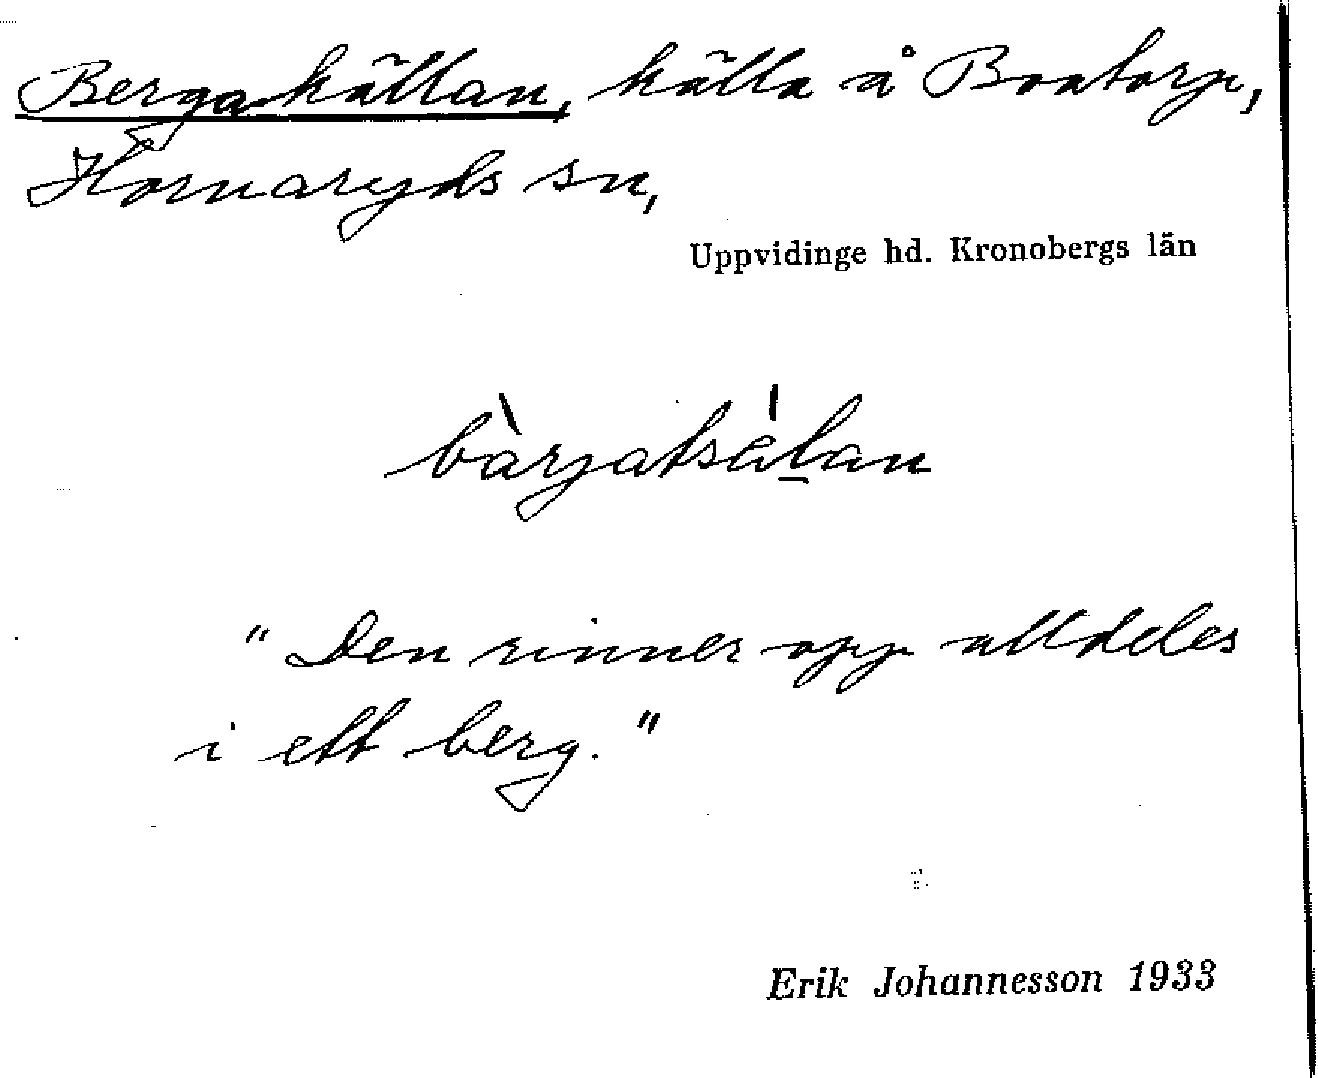 Bergakällan, källa å Boatorp,
Hornaryds sn,
Uppvidinge hd. Kronobergs län
bàrjatsálan
"Den rinner opp alldeles
i ett berg."
Erik Johannesson 1933